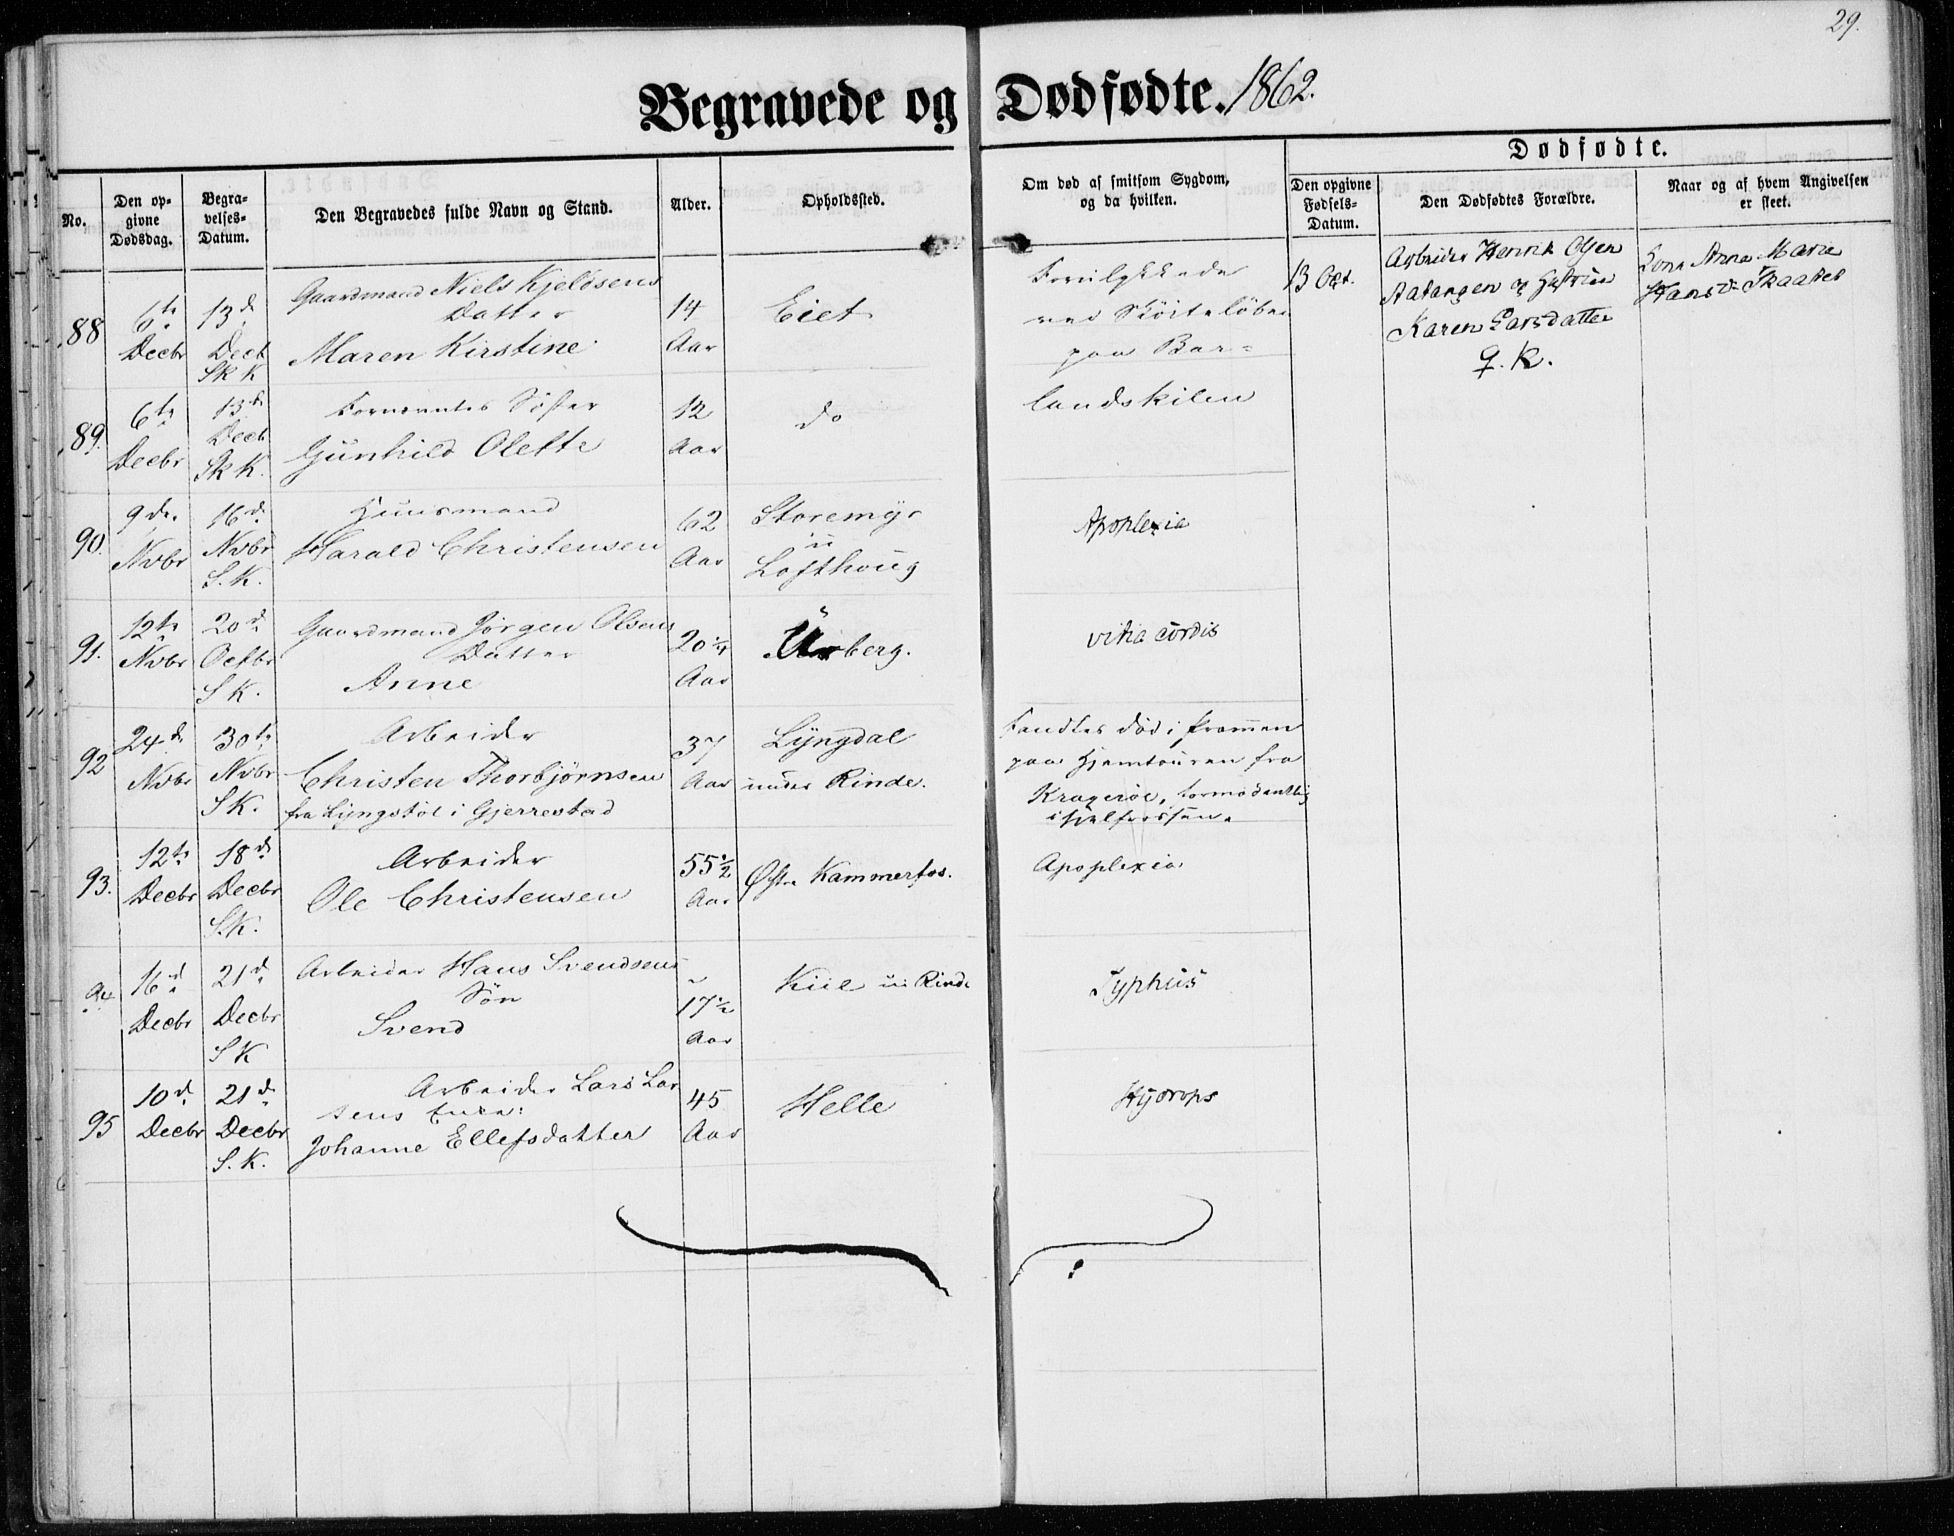 29.
Begravede og Dødfødte. 1862.
No.
Den opgivne Dødsdag.
Begravelses-Datum.
Den Begravedes fulde Navn og Stand.
Alder.
Opholdssted.
Om død af smitsom Sygdom, og da hvilken.
Dødfødte.
Den opgivne Fødsels-Datum.
Den Dødfødtes Forældre.
Naar og af hvem Angivelsen er skeet.
88
6te
Decbr
13de
Decb
Sk K
Gaardmand Niels Kjeldsens
Datter
Maren Kirstine
14
Aar
Eiet
Forulykkede
ved Skøiteløben
paa Bar=
13 Oct.
Arbeider Henrik Olsen
og Hustrue
Karen Larsdatter
Kone Anna Marie
Hansd: Skaadet
89.
6te
Decbr
13de
Decb
Sk K.
Fornævntes Søster
Gunhild Olette
12
Aar
do
landskilen
90.
9de
Nvbr
16de
Nvbr
S. K.
Huusmand
Harald Christensen
62
Aar
Storemyr
u
Lofthoug
Apoplexia
91.
12te
Nvbr
20de
Octbr
S K.
Gaardmand Jørgen Olsens
Datter
Anne
20 ¼
Aar
Urberg.
vitia cordis
92
24de
Nvbr
30te
Nvbr
S K.
Arbeider
Christen Thorbjørnsen
fra Lyngstøl i Gjerrestad
37
Aar
Lyngdal
under Rinde.
Fandtes død i Prammen
paa Hjemtouren fra
Kragerøe, formodentlig
ihjelfrossen.
93.
12te
Decbr
18de
Decbr
S.K.
Arbeider
Ole Christensen
55 ½
Aar
Østre Kammerfos.
Apoplexia
94
16de
Decbr
21de
Decbr
S K
Arbeider Hans Svendsens
Søn
Svend
17 ½
Aar
Kiil u: Rinde
Typhus
95
10de
Decbr
21de
Decbr
S. K.
Arbeider Lars Lar
sens Enke:
Johanne Ellefsdatter
45
Aar
Helle
Hydrops